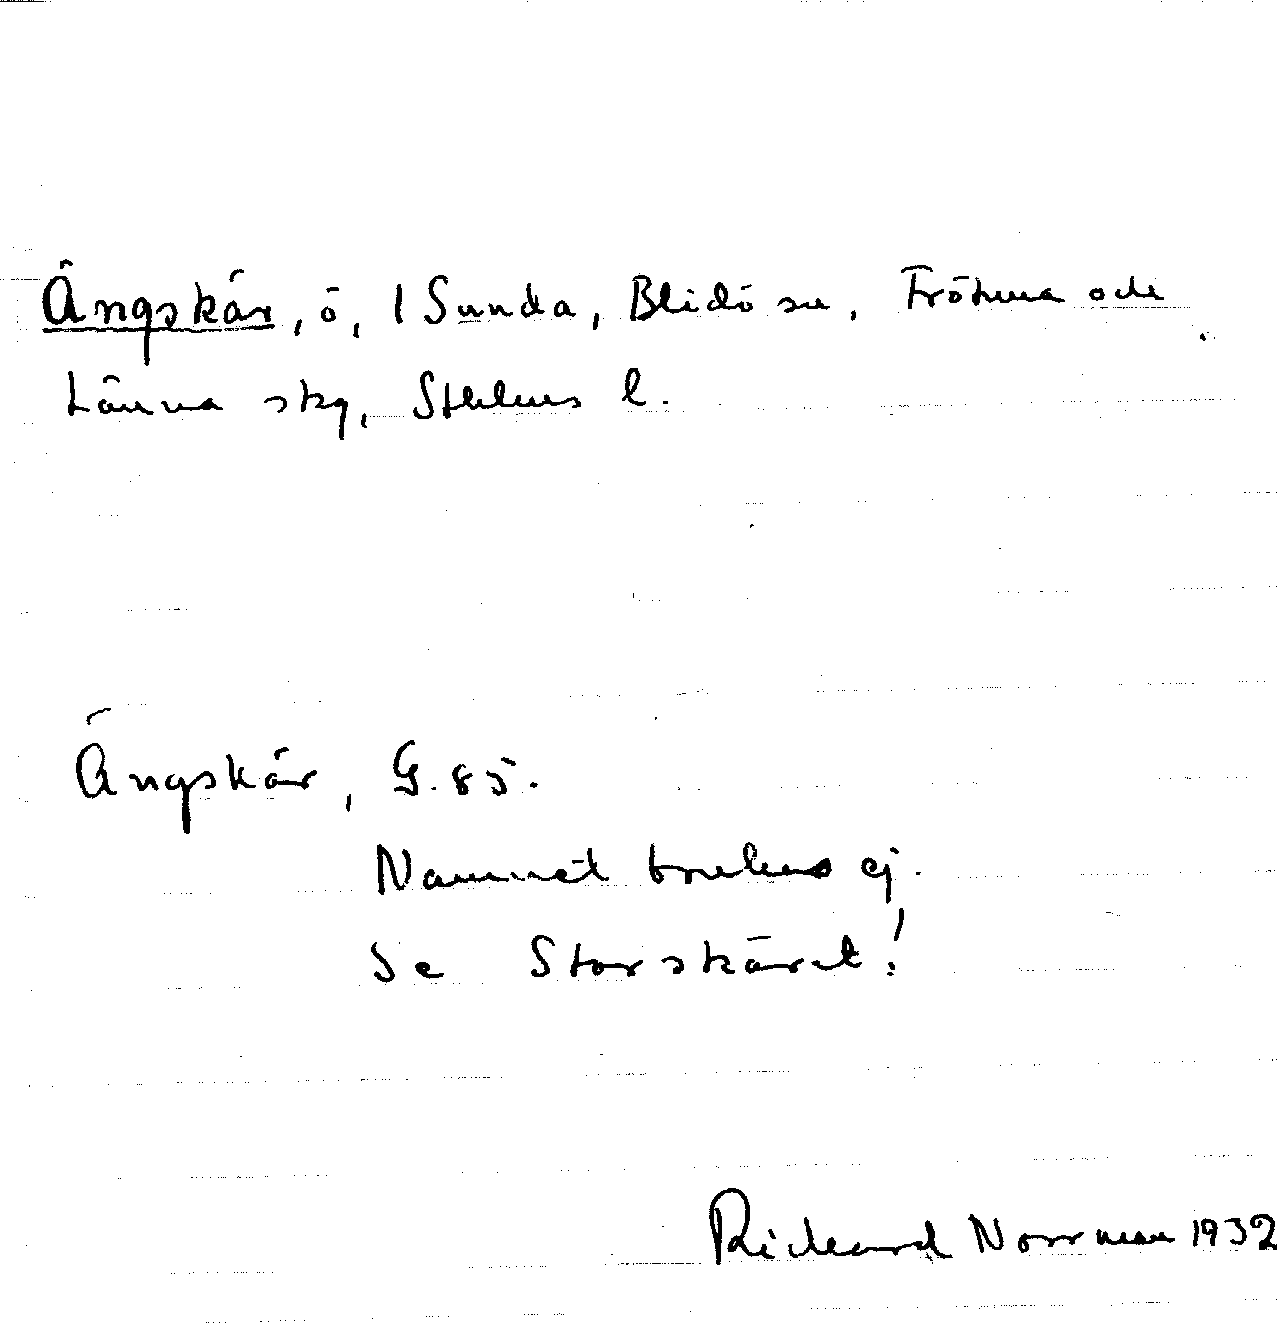 Ängskär, ö, 1 Sunda, Blidö sn, Frötuna och
Länna skg, Sthlms l.
Ängskär, G. 85.
Namnet brukas ej.
Se Storskäret!
Rickard Norrman 1932